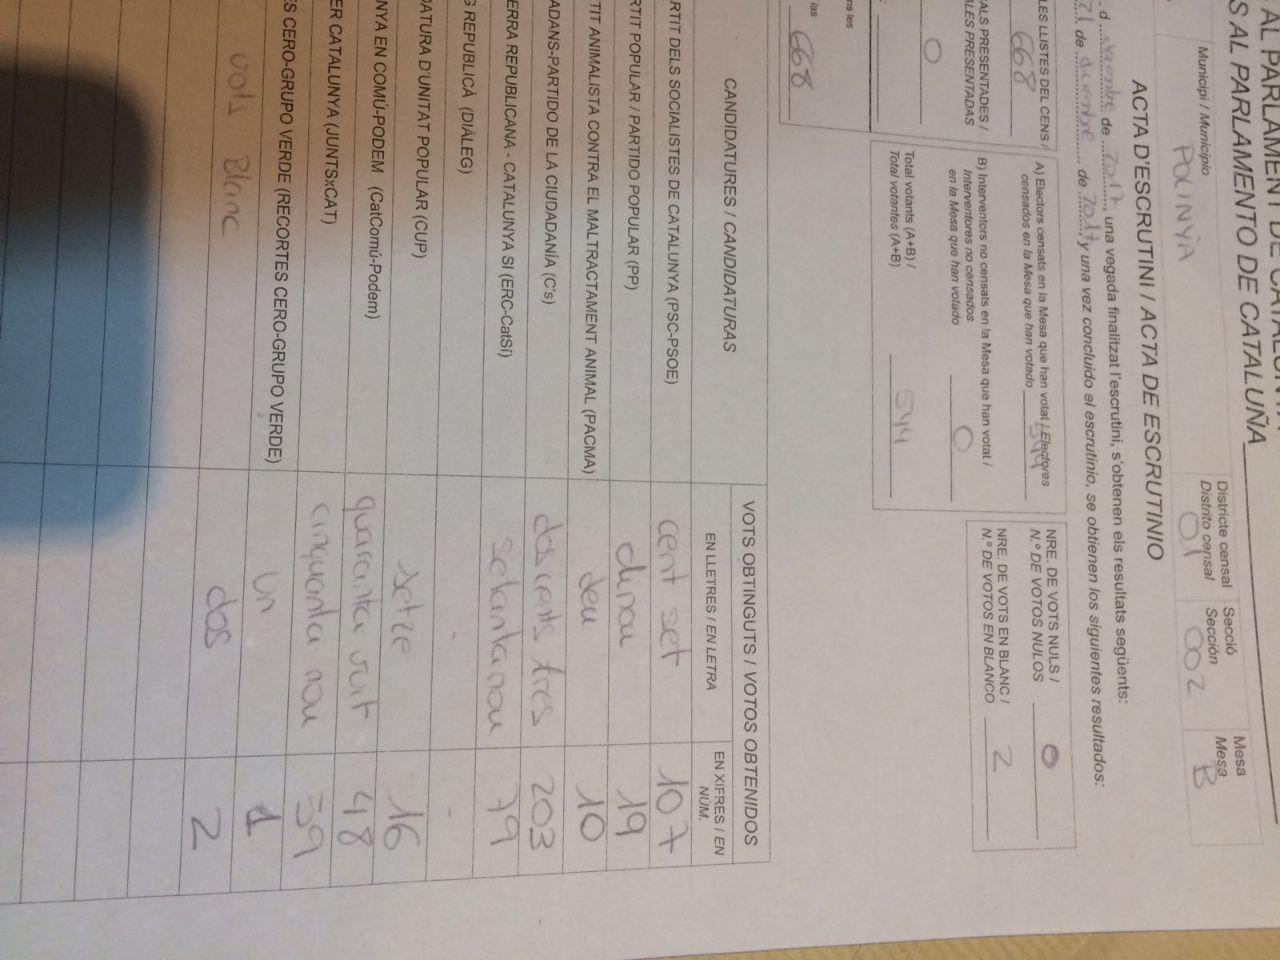 AL PARLAMENT DE CATALUNYA
S AL PARLAMENTO DE CATALUÑA
Municipi / Municipio
POLINYÀ
Districte censal
Distrito censal
01
Secció
Sección
002
Mesa
Mesa
B
ACTA D'ESCRUTINI / ACTA DE ESCRUTINIO
de 2017, una vegada finalitzat l'escrutini, s'obtenen els resultats següents:
21 de diciembre de 2017 y una vez concluido el escrutinio, se obtienen los siguientes resultados:
LES LLISTES DEL CENS /
668
ALS PRESENTADES /
ALES PRESENTADAS
0
A) Electors censats en la Mesa que han votat / Electores
censados en la Mesa que han votado 544
B) Interventors no censats en la Mesa que han votat /
Interventores no censados
en la Mesa que han votado 0
Total votants (A+B) /
Total votantes (A+B) 544
NRE. DE VOTS NULS /
N.º DE VOTOS NULOS 0
NRE. DE VOTS EN BLANC /
N.º DE VOTOS EN BLANCO 2
ns les
las
668
CANDIDATURES / CANDIDATURAS
VOTS OBTINGUTS / VOTOS OBTENIDOS
EN LLETRES / EN LETRA
EN XIFRES / EN NÚM.
RTIT DELS SOCIALISTES DE CATALUNYA (PSC-PSOE) cent set 107
RTIT POPULAR / PARTIDO POPULAR (PP) dinou 19
TIT ANIMALISTA CONTRA EL MALTRACTAMENT ANIMAL (PACMA) deu 10
ADANS-PARTIDO DE LA CIUDADANÍA (C's) dos cents tres 203
ERRA REPUBLICANA - CATALUNYA SI (ERC-CatSí) setanta nou 79
G REPUBLICÀ (DIÀLEG) - -
DATURA D'UNITAT POPULAR (CUP) setze 16
NYA EN COMÚ-PODEM (CatComú-Podem) quaranta vuit 48
ER CATALUNYA (JUNTSxCAT) cinquanta nou 59
ES CERO-GRUPO VERDE (RECORTES CERO-GRUPO VERDE) un 1
vots Blanc dos 2